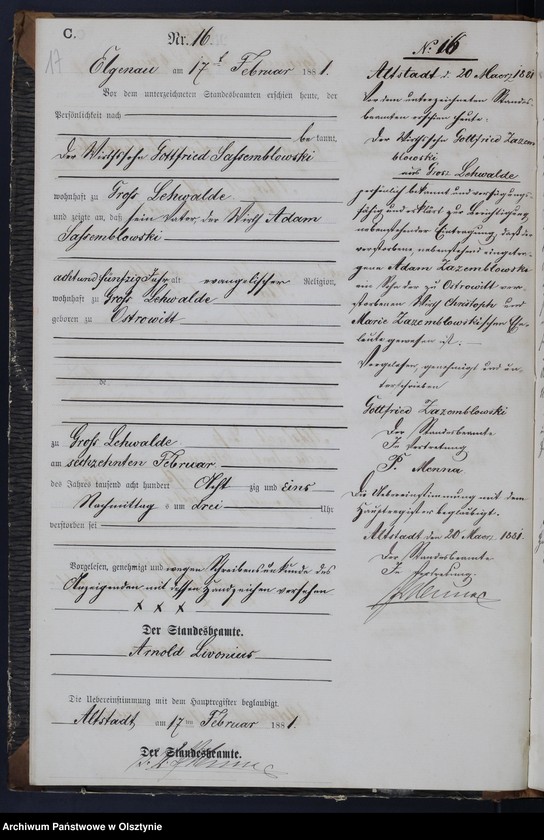 C.
17
Nr. 16.
Elgenau am 17 t Februar 1881.
Vor dem unterzeichneten Standesbeamten erschien heute, der
Persönlichkeit nach
be kannt,
der Wirthssohn Gottfried Sassemblowski
wohnhaft zu Gross Lehwalde
und zeigte an, daß sein Vater, der Wirth Adam
Sassemblowski
acht und fünfzig Jahr alt evangelischer Religion,
wohnhaft zu Gross Lehwalde
geboren zu Ostrowitt
de
zu Gross Lehwalde
am sechzehnten Februar
des Jahres tausend acht hundert Acht zig und eins
Nachmittag s um drei Uhr
verstorben sei
Vorgelesen, genehmigt und wegen Schreibensunkunde des
Anzeigenden mit dessen Handzeichen versehen
x x x
Der Standesbeamte.
Arnold Livonius
Die Uebereinstimmung mit dem Hauptregister beglaubigt.
Altstadt, am 17 ten Februar 1881.
Der Standesbeamte.
No 16
Altstadt d. 20 Maerz 1881
Vor dem unterzeichneten Standes-
beamten erschien heute:
Der Wirthssohn Gottfried Zazem-
blowski
aus Gross Lehwalde
persönlich bekannt und verfügungs-
fähig und erklärt zur Berichtigung
nebenstehender Eintragung, daß der
verstorbene, nebenstehend eingetra-
gene Adam Zazemblowski
ein Sohn der zu Ostrowitt ver-
storbenen Wirth Christoph und
Marie Zazemblowski'schen Ehe-
leute gewesen ist.
Vorgelesen, genehmigt und un-
terschrieben
Gottfried Zazemblowski
Der Standesbeamte
In Vertretung
F. Menna
Die Uebereinstimmung mit dem
Hauptregister beglaubigt.
Altstadt, den 20 Maerz 1881.
Der Standesbeamte
In Vertretung.
Archiwum Państwowe w Olsztynie